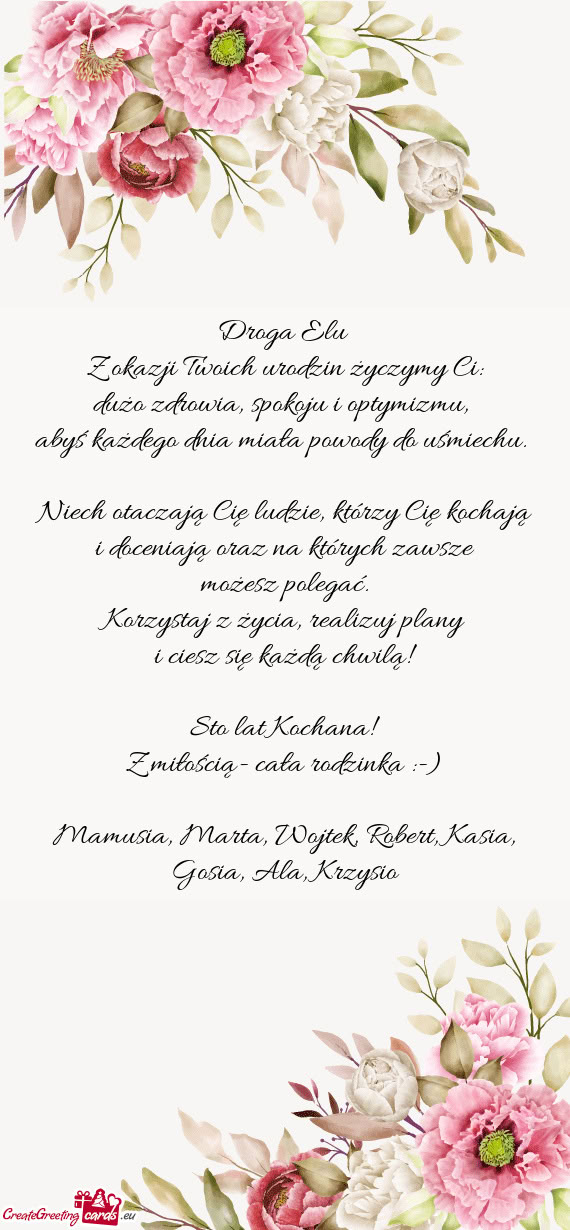 Droga Elu
Z okazji Twoich urodzin życzymy Ci:
dużo zdrowia, spokoju i optymizmu,
abyś każdego dnia miała powody do uśmiechu.
Niech otaczają Cię ludzie, którzy Cię kochają
i doceniają oraz na których zawsze
możesz polegać.
Korzystaj z życia, realizuj plany
i ciesz się każdą chwilą!
Sto lat Kochana!
Z miłością - cała rodzinka :-)
Mamusia, Marta, Wojtek, Robert, Kasia,
Gosia, Ala, Krzysio
CreateGreeting cards .eu